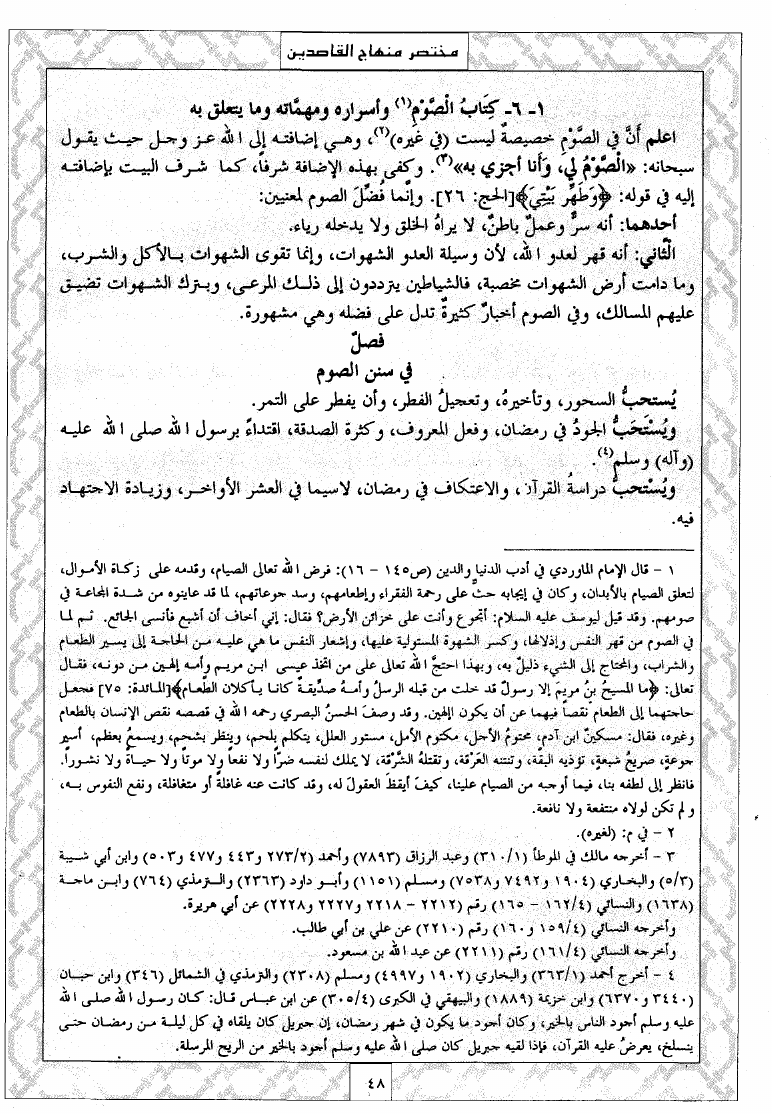 مختصر منهاج القاصدين
١- ٦- كِتَابُ الْصَّوْمِ(١) وأسراره ومهمَّاته وما يتعلق به
اعلم أَنَّ في الصَّوْم خصيصةً ليست (في غيره)(٢)، وهي إضافته إلى الله عز وجل حيث يقول
سبحانه: «الْصَّوْمُ لي، وَأَنا أجزي به»(٣). وكفى بهذه الإضافة شرفاً، كما شرف البيت بإضافته
إليه في قوله: ﴿وَطَهِّر بَيْتِيَ﴾[الحج: ٢٦]. وإنَّما فُضِّلَ الصوم لمعنيين:
أحدهما: أنه سرٌّ وعملٌ باطنٌ، لا يراهُ الخلق ولا يدخله رياء.
الْثَّاني: أنه قهر لعدو الله، لأن وسيلة العدو الشهوات، وإنما تقوى الشهوات بالأكل والشرب،
وما دامت أرض الشهوات مخصبة، فالشياطين يترددون إلى ذلك المرعى، وبترك الشهوات تضيق
عليهم المسالك، وفي الصوم أخبارٌ كثيرةٌ تدل على فضله وهي مشهورة.
فصلٌ
في سنن الصوم
يُستحبُّ السحور، وتأخيرهُ، وتعجيلُ الفطر، وأن يفطر على التمر.
ويُسْتَحَبُّ الجودُ في رمضان، وفعل المعروف، وكثرة الصدقة، اقتداءً برسول الله صلى الله عليه
(وآله) وسلم(٤).
ويُسْتحبُّ دراسةُ القرآن، والاعتكاف في رمضان، لاسيما في العشر الأواخر، وزيادة الاجتهاد
فيه.
١ - قال الإمام الماوردي في أدب الدنيا والدين (ص١٤٥ - ١٦): فرض الله تعالى الصيام، وقدمه على زكاة الأموال،
لتعلق الصيام بالأبدان، وكان في إيجابه حثٌّ على رحمة الفقراء وإطعامهم، وسد جوعاتهم، لما قد عاينوه من شدة المجاعة في
صومهم. وقد قيل ليوسف عليه السلام: أتجوع وأنت على خزائن الأرض؟ فقال: إني أخاف أن أشبع فأنسى الجائع. ثم لما
في الصوم من قهر النفس وإذلالها، وكسر الشهوة المستولية عليها، وإشعار النفس ما هي عليه من الحاجة إلى يسير الطعام
والشراب، والمحتاج إلى الشيء ذليلٌ به، وبهذا احتجَّ الله تعالى على من اتخذ عيسى ابن مريم وأمه إلهين من دونه، فقال
تعالى: ﴿ما المسيحُ بنُ مريمَ إلا رسولٌ قد خلت من قبله الرسلُ وأمهُ صدِّيقةٌ كانا يأكلان الطَّعام﴾[المائدة: ٧٥] فجعل
حاجتهما إلى الطعام نقصاً فيهما عن أن يكون إلهين. وقد وصفَ الحسنُ البصري رحمه الله في قصصه نقص الإنسان بالطعام
وغيره، فقال: مسكينٌ ابن آدم، محتومُ الأجل، مكتوم الأمل، مستور العلل، يتكلم بلحم، وينظر بشحم، ويسمعُ بعظم، أسير
جوعةٍ، صريعُ شبعةٍ، تؤذيه البقَّة، وتنتنه العَرْقة، وتقتلهُ الشَّرْقة، لا يملك لنفسه ضرّاً ولا نفعاً ولا موتاً ولا حياةً ولا نشوراً.
فانظر إلى لطفه بنا، فيما أوجبه من الصيام علينا، كيفَ أيقظَ العقولَ له، وقد كانت عنه غافلةً أو متغافلة، ونفع النفوس به،
ولم تكن لولاه منتفعة ولا نافعة.
٢ - في م: (لغيره).
٣ - أخرجه مالك في الموطأ (٣١٠/١) وعبد الرزاق (٧٨٩٣) وأحمد (٢٧٣/٢ و٤٤٣ و٤٧٧ و٥٠٣) وابن أبي شيبة
(٥/٣) والبخاري (١٩٠٤ و٧٤٩٢ و٧٥٣٨) ومسلم (١١٥١) وأبو داود (٢٣٦٣) والترمذي (٧٦٤) وابن ماجة
(١٦٣٨) والنسائي (١٦٢/٤ - ١٦٥) رقم (٢٢١٢ - ٢٢١٨ و٢٢٢٧ و٢٢٢٨) عن أبي هريرة.
وأخرجه النسائي (١٥٩/٤ و١٦٠) رقم (٢٢١٠) عن علي بن أبي طالب.
وأخرجه النسائي (١٦١/٤) رقم (٢٢١١) عن عبد الله بن مسعود.
٤ - أخرج أحمد (٣٦٣/١) والبخاري (١٩٠٢ و٤٩٩٧) ومسلم (٢٣٠٨) والترمذي في الشمائل (٣٤٦) وابن حبان
(٣٤٤٠ و٦٣٧٠) وابن خزيمة (١٨٨٩) والبيهقي في الكبرى (٣٠٥/٤) عن ابن عباس قال: كان رسول الله صلى الله
عليه وسلم أجود الناس بالخير، وكان أجود ما يكون في شهر رمضان، إن جبريل كان يلقاه في كل ليلة من رمضان حتى
ينسلخ، يعرضُ عليه القرآن، فإذا لقيه جبريل كان صلى الله عليه وسلم أجود بالخير من الريح المرسلة.
٤٨